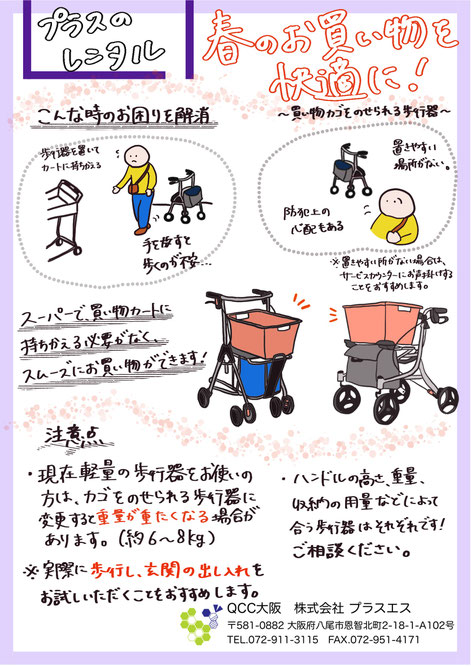 プラスの
レンタル
春のお買い物を
快適に!
～買い物カゴをのせられる歩行器～
こんな時のお困りを解消
歩行器を置いて
カートに持ちかえる
手を皮すと
歩くのが不安…
置きやすい
場所がない。
防犯上の
心配もある
※置きやすい所がない場合は、
サービスカウンターにお声掛けする
ことをおすすめします。
スーパーで、買い物カートに
持ちかえる必要がなく、
スムーズにお買い物ができます!
注意点
・現在軽量の歩行器をお使いの
方は、カゴをのせられる歩行器に
変更すると重量が重たくなる場合が
あります。(約6～8kg)
※実際に歩行し、玄関の出し入れを
お試しいただくことをおすすめします。
・ハンドルの高さ、重量、
収納の用量などによって
合う歩行器はそれぞれです!
ご相談ください。
QCC大阪 株式会社 プラスエス
〒581-0882 大阪府八尾市恩智北町2-18-1-A102号
TEL.072-911-3115 FAX.072-951-4171